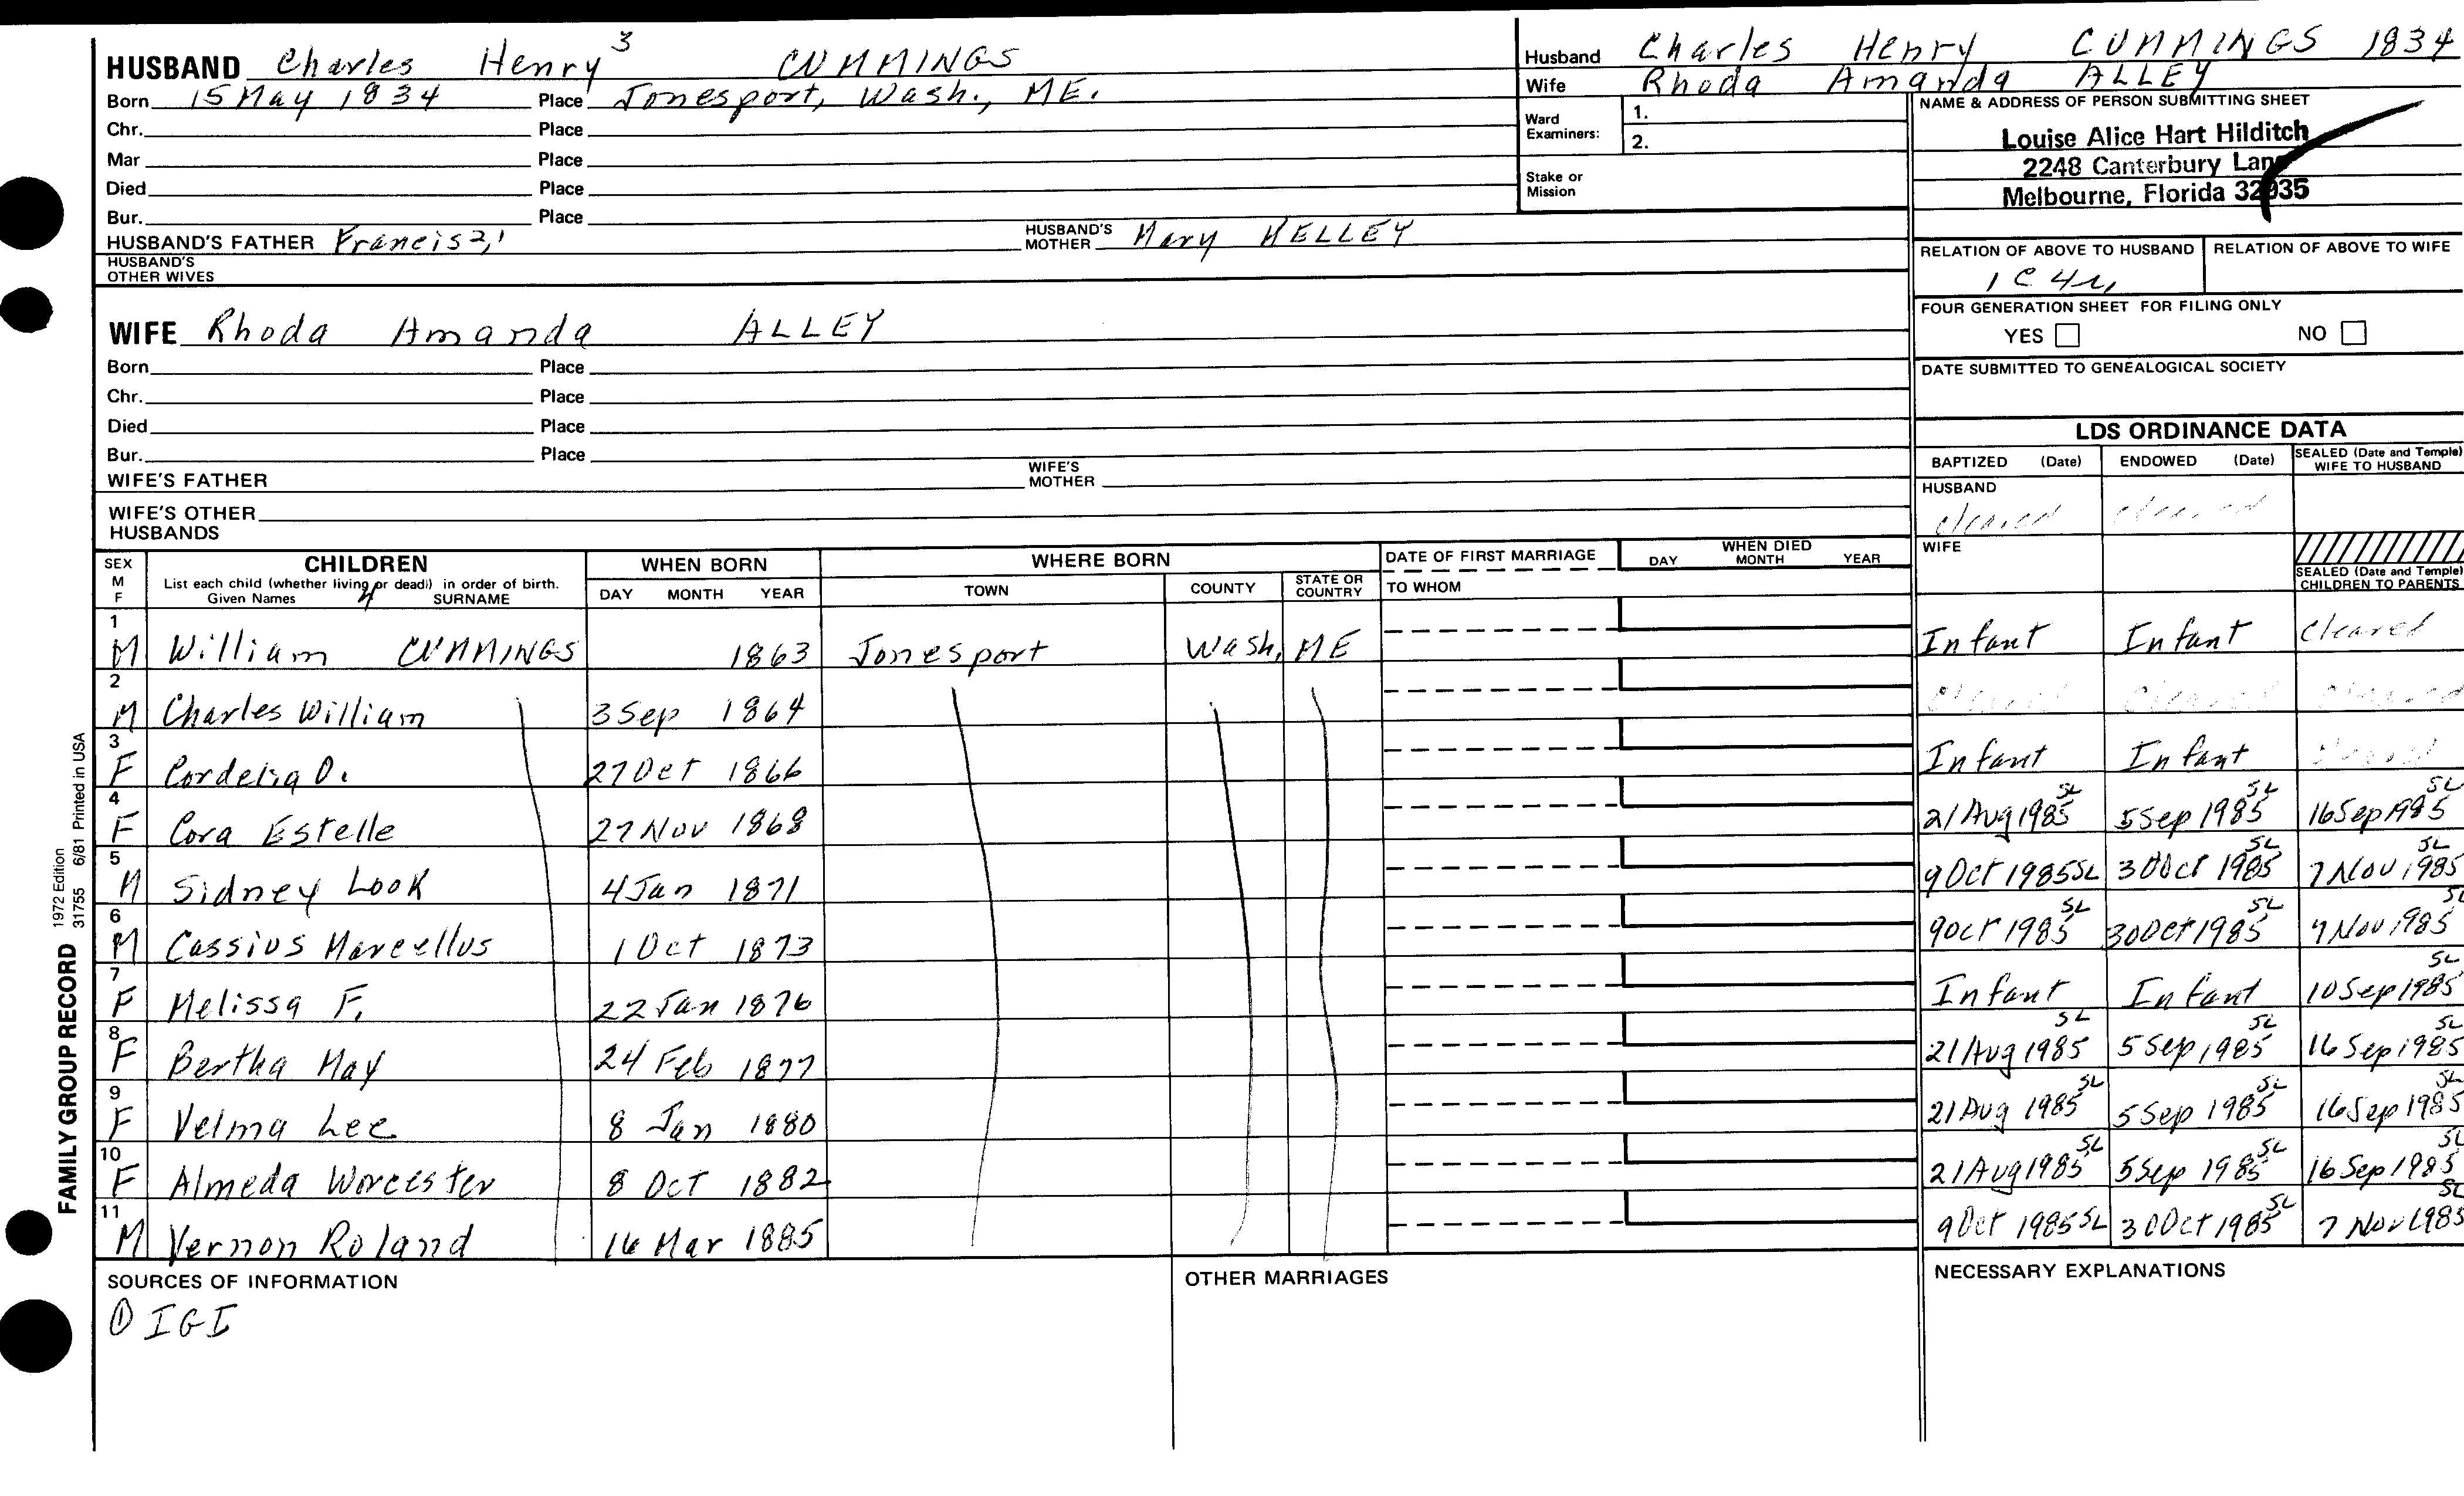 HUSBAND Charles Henry 3 CUMMINGS
Born 15 May 1834 Place Jonesport, Wash., ME.
Chr. Place
Mar Place
Died Place
Bur. Place
HUSBAND'S FATHER Francis 2,1 HUSBAND'S MOTHER Mary KELLEY
HUSBAND'S OTHER WIVES
WIFE Rhoda Amanda ALLEY
Born Place
Chr. Place
Died Place
Bur. Place
WIFE'S FATHER WIFE'S MOTHER
WIFE'S OTHER HUSBANDS
Husband Charles Henry CUMMINGS 1834
Wife Rhoda Amanda ALLEY
Ward Examiners: 1.
2.
Stake or Mission
NAME & ADDRESS OF PERSON SUBMITTING SHEET
Louise Alice Hart Hilditch
2248 Canterbury Lane
Melbourne, Florida 32935
RELATION OF ABOVE TO HUSBAND RELATION OF ABOVE TO WIFE
1C4r,
FOUR GENERATION SHEET FOR FILING ONLY
YES NO
DATE SUBMITTED TO GENEALOGICAL SOCIETY
LDS ORDINANCE DATA
BAPTIZED (Date) ENDOWED (Date) SEALED (Date and Temple) WIFE TO HUSBAND
HUSBAND
cleared cleared
WIFE
SEALED (Date and Temple) CHILDREN TO PARENTS
SEX M F CHILDREN WHEN BORN WHERE BORN DATE OF FIRST MARRIAGE WHEN DIED
List each child (whether living or dead) in order of birth.
Given Names SURNAME DAY MONTH YEAR TOWN COUNTY STATE OR COUNTRY TO WHOM DAY MONTH YEAR
1 M William CUMMINGS 1863 Jonesport Wash, ME Infant Infant Cleared
2 M Charles William 3 Sep 1864 Cleared Cleared Cleared
3 F Cordelia D. 27 Oct 1866 Infant Infant
4 F Cora Estelle 27 Nov 1868 21 Aug 1985 SL 5 Sep 1985 SL 16 Sep 1985 SL
5 M Sidney Look 4 Jan 1871 9 Oct 1985 SL 30 Oct 1985 SL 7 Nov 1985 SL
6 M Cassius Marcellus 1 Oct 1873 9 Oct 1985 SL 30 Oct 1985 SL 7 Nov 1985 SL
7 F Melissa F. 22 Jan 1876 Infant Infant 10 Sep 1985 SL
8 F Bertha May 24 Feb 1877 21 Aug 1985 SL 5 Sep 1985 SL 16 Sep 1985 SL
9 F Velma Lee 8 Jan 1880 21 Aug 1985 SL 5 Sep 1985 SL 16 Sep 1985 SL
10 F Almeda Worcester 8 Oct 1882 21 Aug 1985 SL 5 Sep 1985 SL 16 Sep 1985 SL
11 M Vernon Roland 16 Mar 1885 9 Oct 1985 SL 30 Oct 1985 SL 7 Nov 1985 SL
SOURCES OF INFORMATION OTHER MARRIAGES NECESSARY EXPLANATIONS
① IGI
FAMILY GROUP RECORD 1972 Edition 31755 6/81 Printed in USA